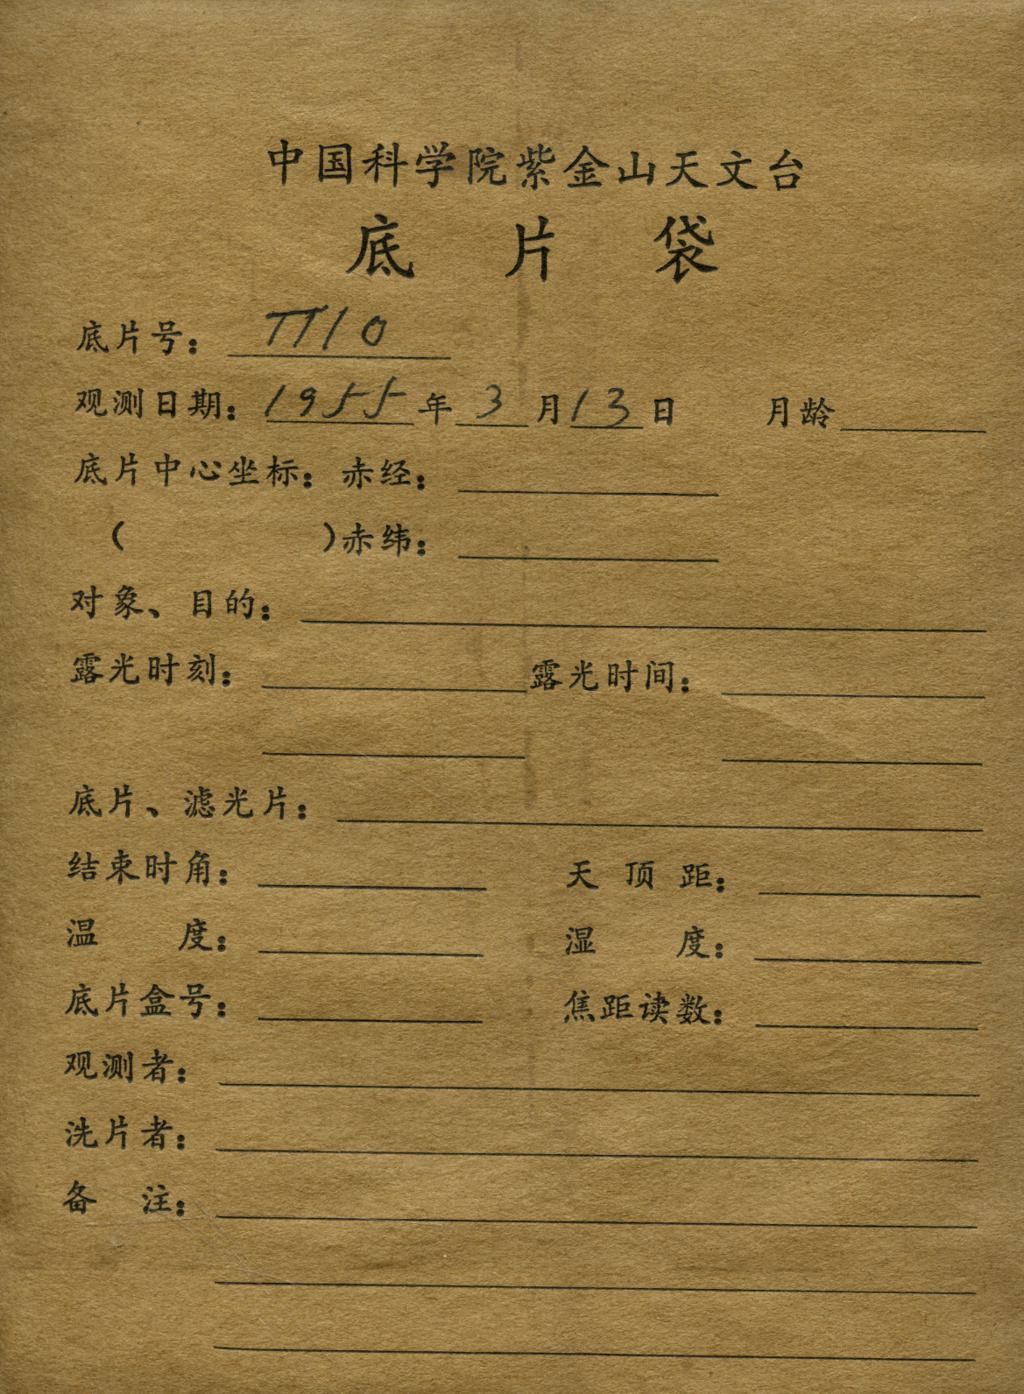 中国科学院紫金山天文台
底片袋
底片号：TT10
观测日期：1955年3月13日 月龄
底片中心坐标：赤经：
（ ）赤纬：
对象、目的：
露光时刻： 露光时间：
底片、滤光片：
结束时角： 天顶距：
温度： 湿度：
底片盒号： 焦距读数：
观测者：
洗片者：
备注：